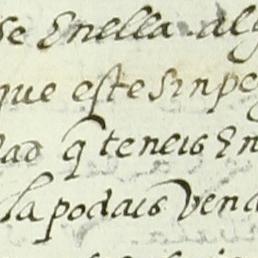 se Enella alg
que este sin pe
dad q̃ teneis En
la podais Vend